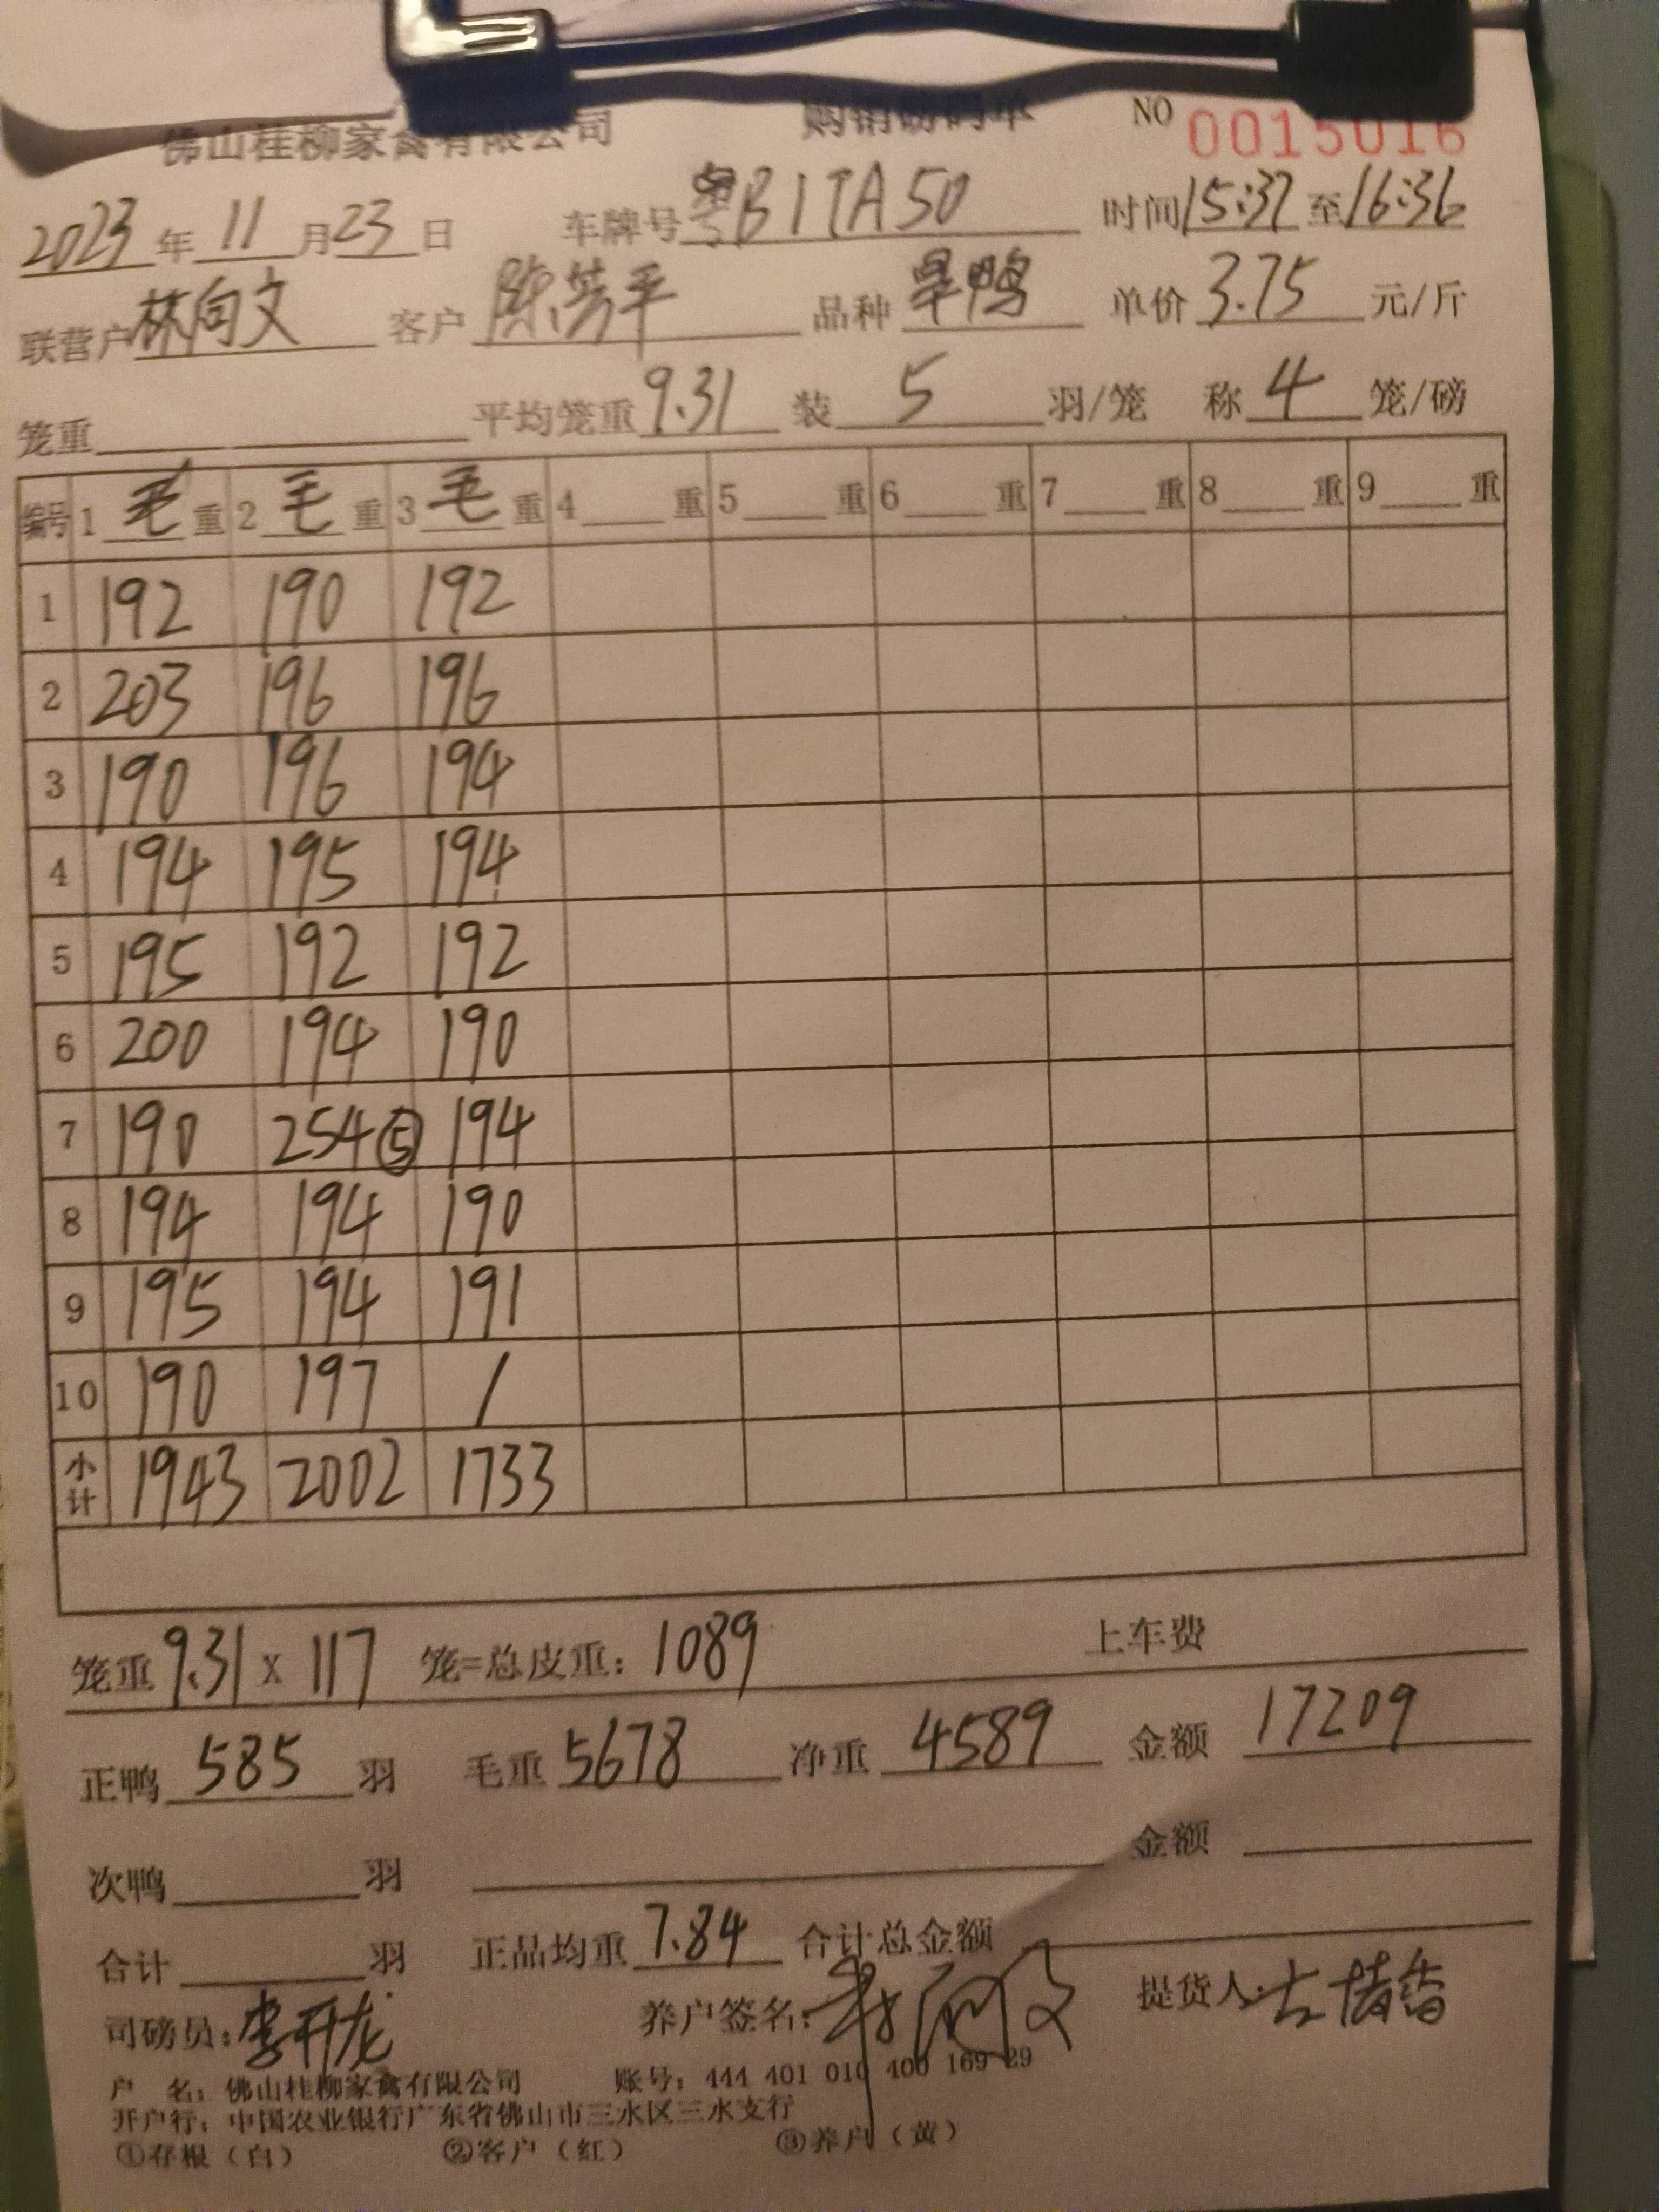 佛山桂柳家禽有限公司 购销磅码单 NO 0015016
2023年11月23日 车牌号粤B1TA50 时间15:37至16:36
联营户林向文 客户 陈 平 品种旱鸭 单价3.75元/斤
笼重 平均笼重9.31 装5羽/笼 称4笼/磅
编号 1毛重 2毛重 3毛重 4重 5重 6重 7重 8重 9重
1 192 190 192
2 203 196 196
3 190 196 194
4 194 195 194
5 195 192 192
6 200 194 190
7 190 254⑤ 194
8 194 194 190
9 195 194 191
10 190 197 /
小计 1943 2002 1733
笼重9.31 x 117 笼=总皮重：1089 上车费
正鸭585羽 毛重5678 净重4589 金额17209
次鸭 羽 金额
合计 羽 正品均重7.84 合计总金额
司磅员：李开龙 养户签名：林向文 提货人：
户 名：佛山桂柳家禽有限公司 账号：444 401 010 400 169 29
开户行：中国农业银行广东省佛山市三水区三水支行
①存根（白） ②客户（红） ③养户（黄）